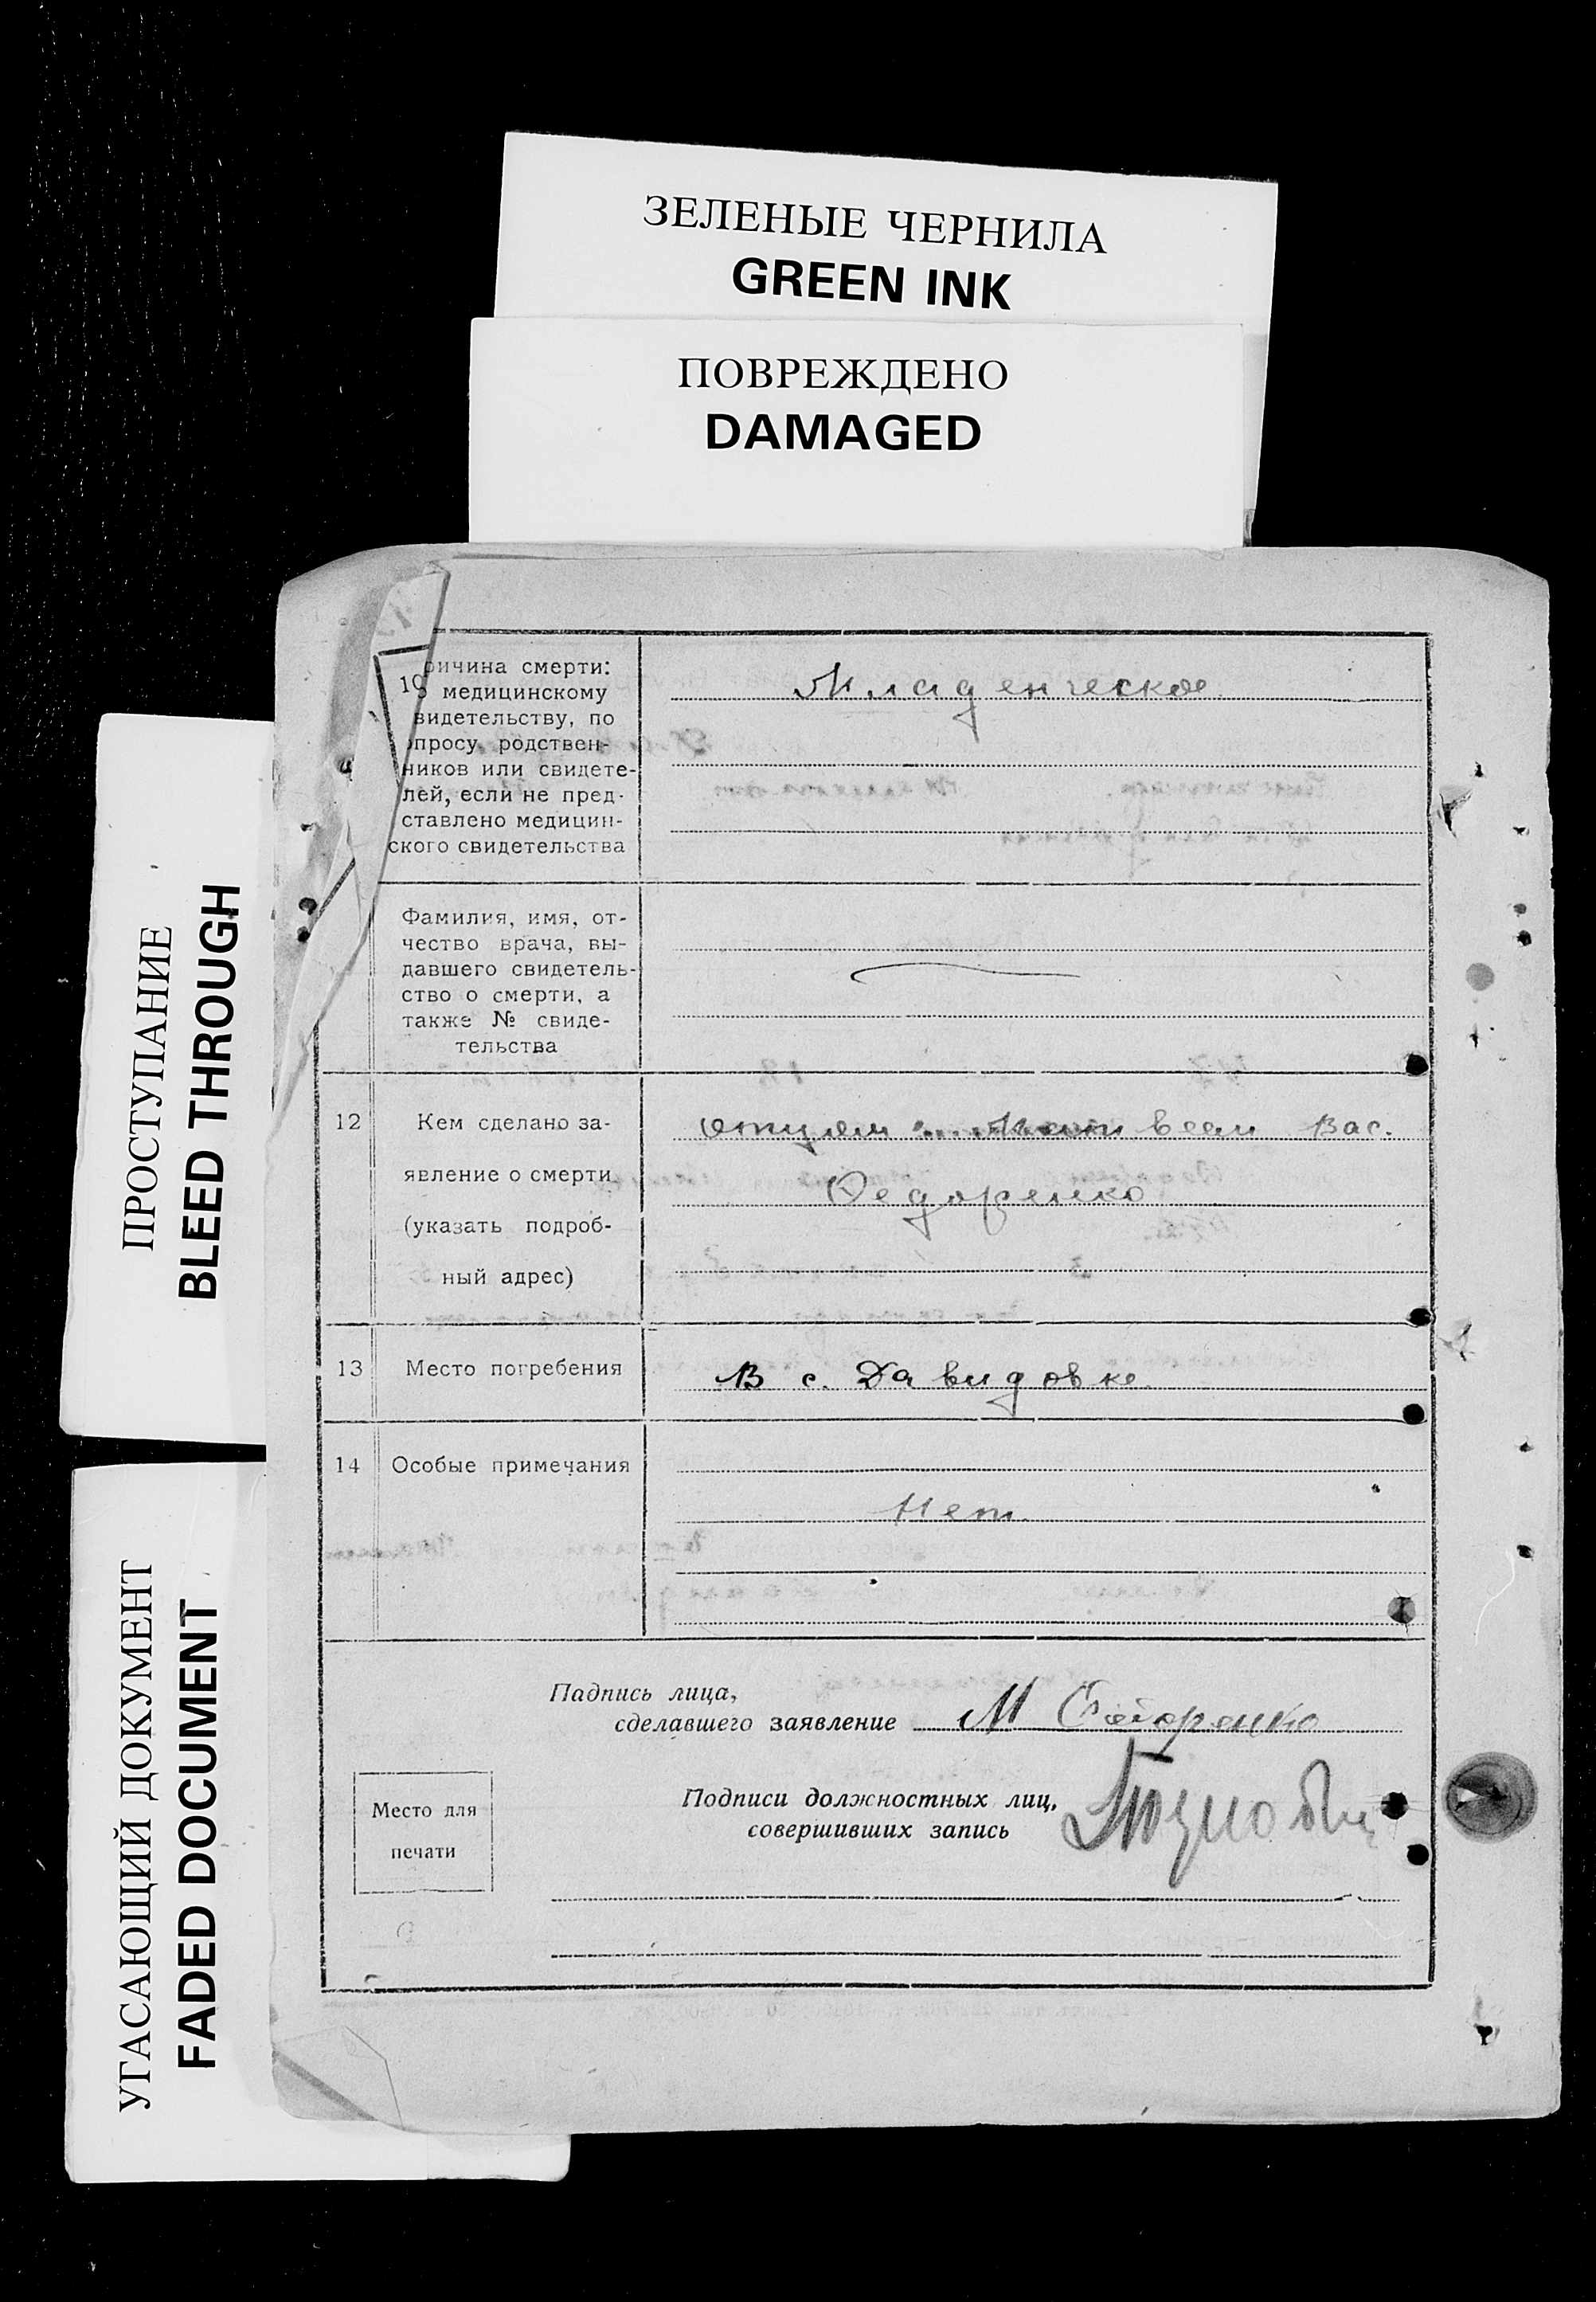 ЗЕЛЕНЫЕ ЧЕРНИЛА
GREEN INK
ПОВРЕЖДЕНО
DAMAGED
ПРОСТУПАНИЕ
BLEED THROUGH
УГАСАЮЩИЙ ДОКУМЕНТ
FADED DOCUMENT
10
ричина смерти:
медицинскому
видетельству, по
опросу родствен-
ников или свидете-
лей, если не пред-
ставлено медицин-
ского свидетельства
Младенческое
Фамилия, имя, от-
чество врача, вы-
давшего свидетель-
ство о смерти, а
также № свиде-
тельства
12
Кем сделано за-
явление о смерти
(указать подроб-
ный адрес)
отцом Вас.
Федоренко
13
Место погребения
В с. Давидовке
14
Особые примечания
Нет
Падпись лица,
сделавшего заявление М Федоренко
Подписи должностных лиц,
совершивших запись
Место для
печати